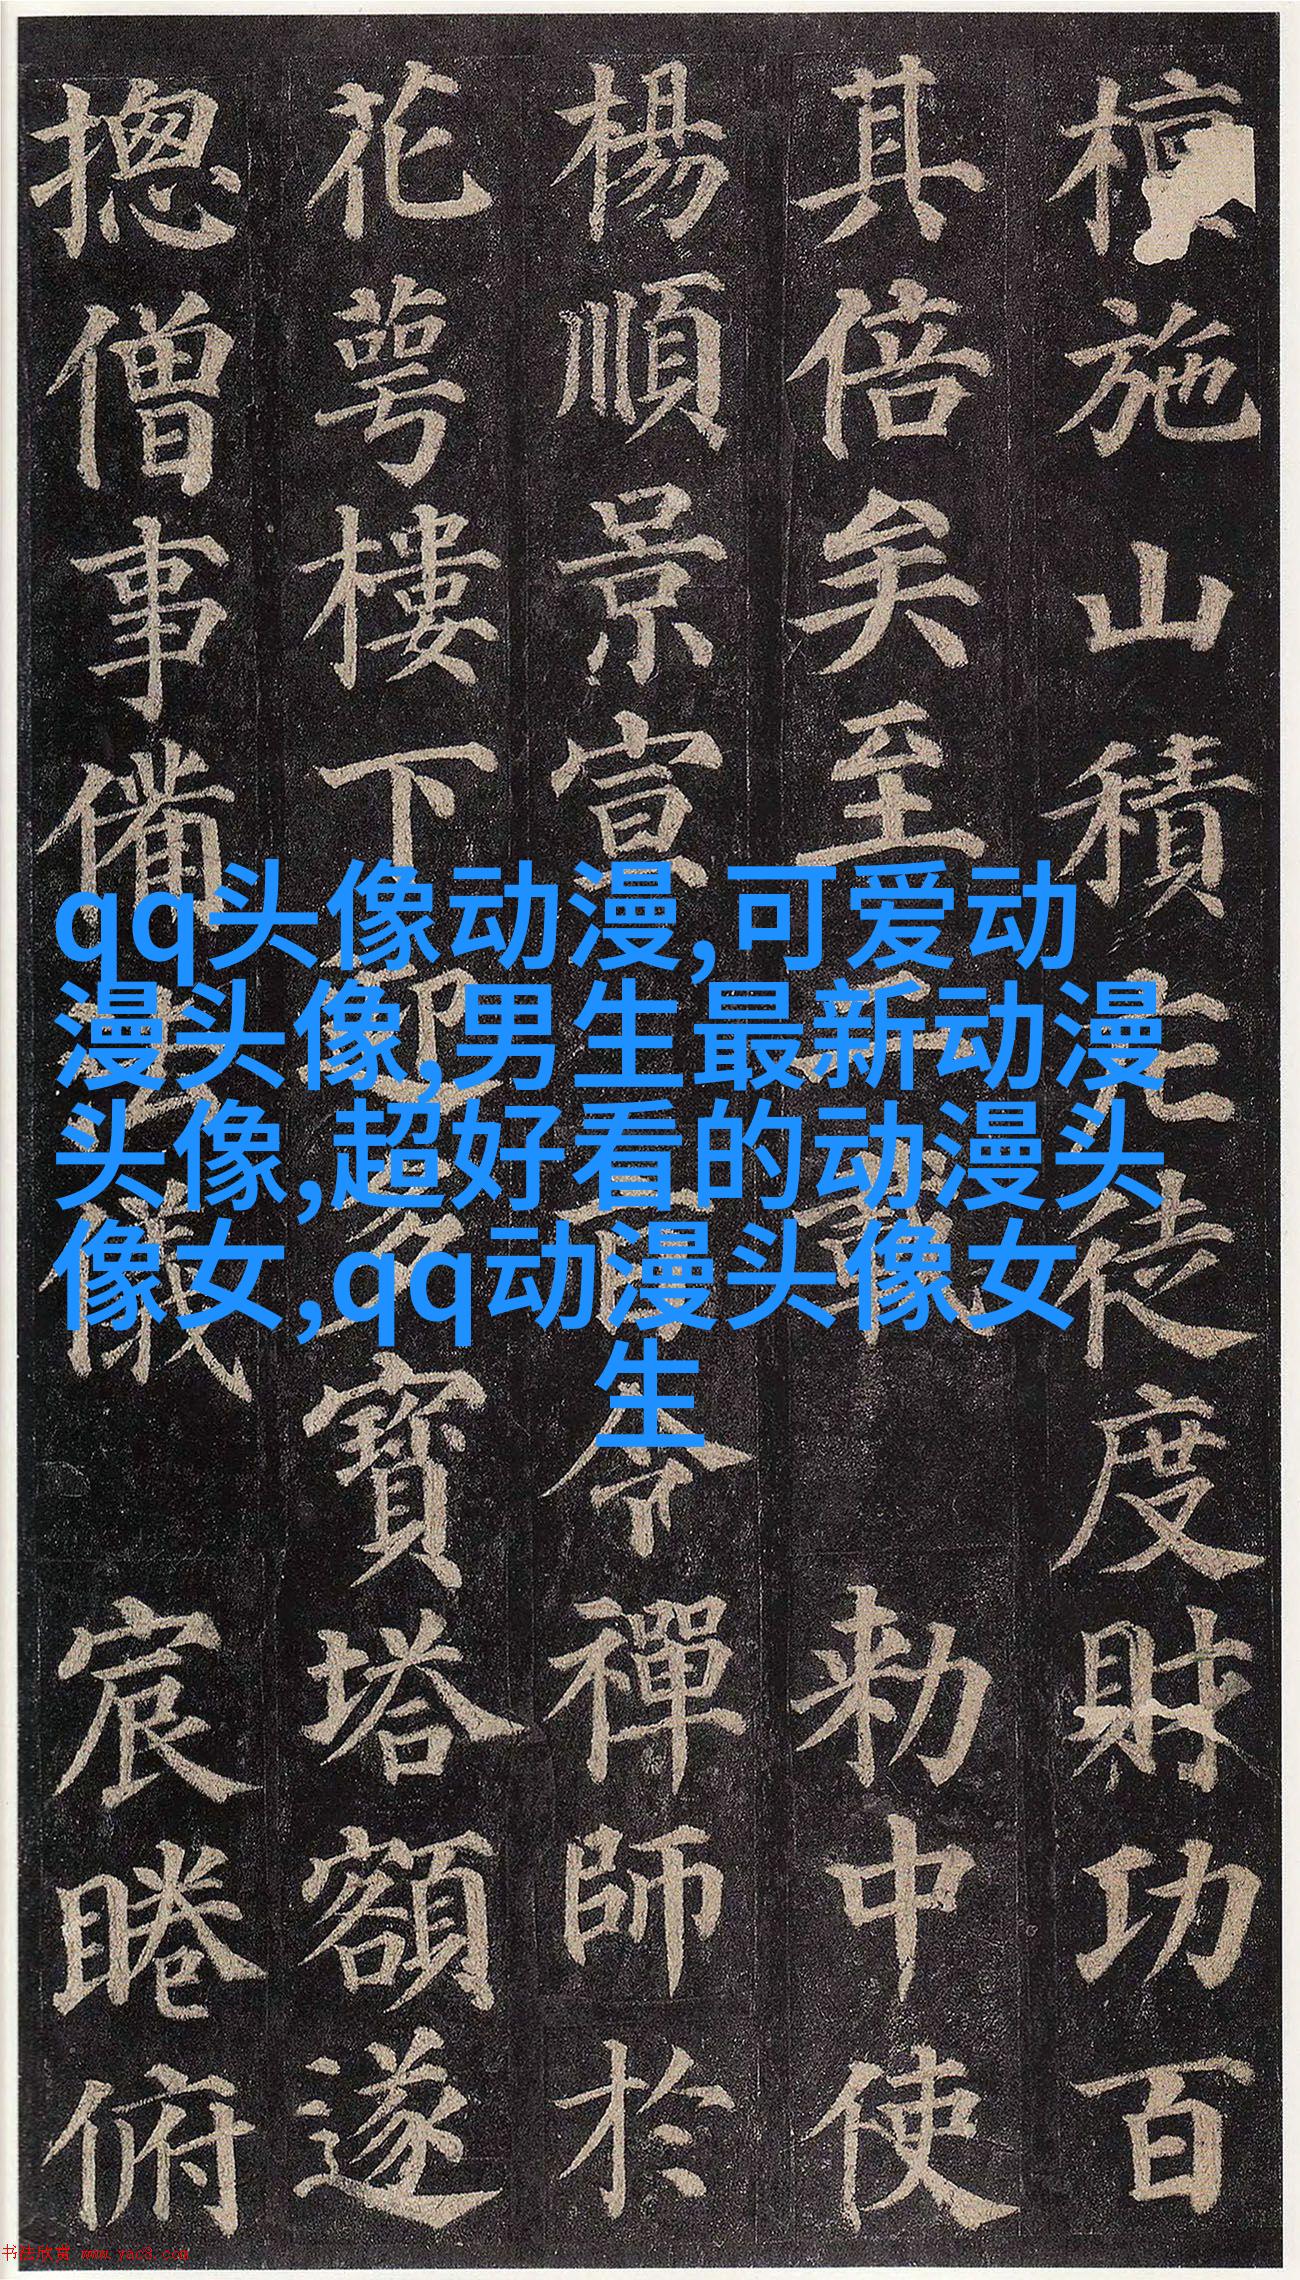 檀施山積庀徒度財功百
其倍矣至二載勑中使
楊順景宣旨令禪師於
花萼樓下迎多寶塔額遂
摠僧事備法儀宸睠俯
qq头像动漫,可爱动
漫头像,男生最新动漫
头像,超好看的动漫头
像女,qq动漫头像女
生
书法欣赏 www.yac8.com